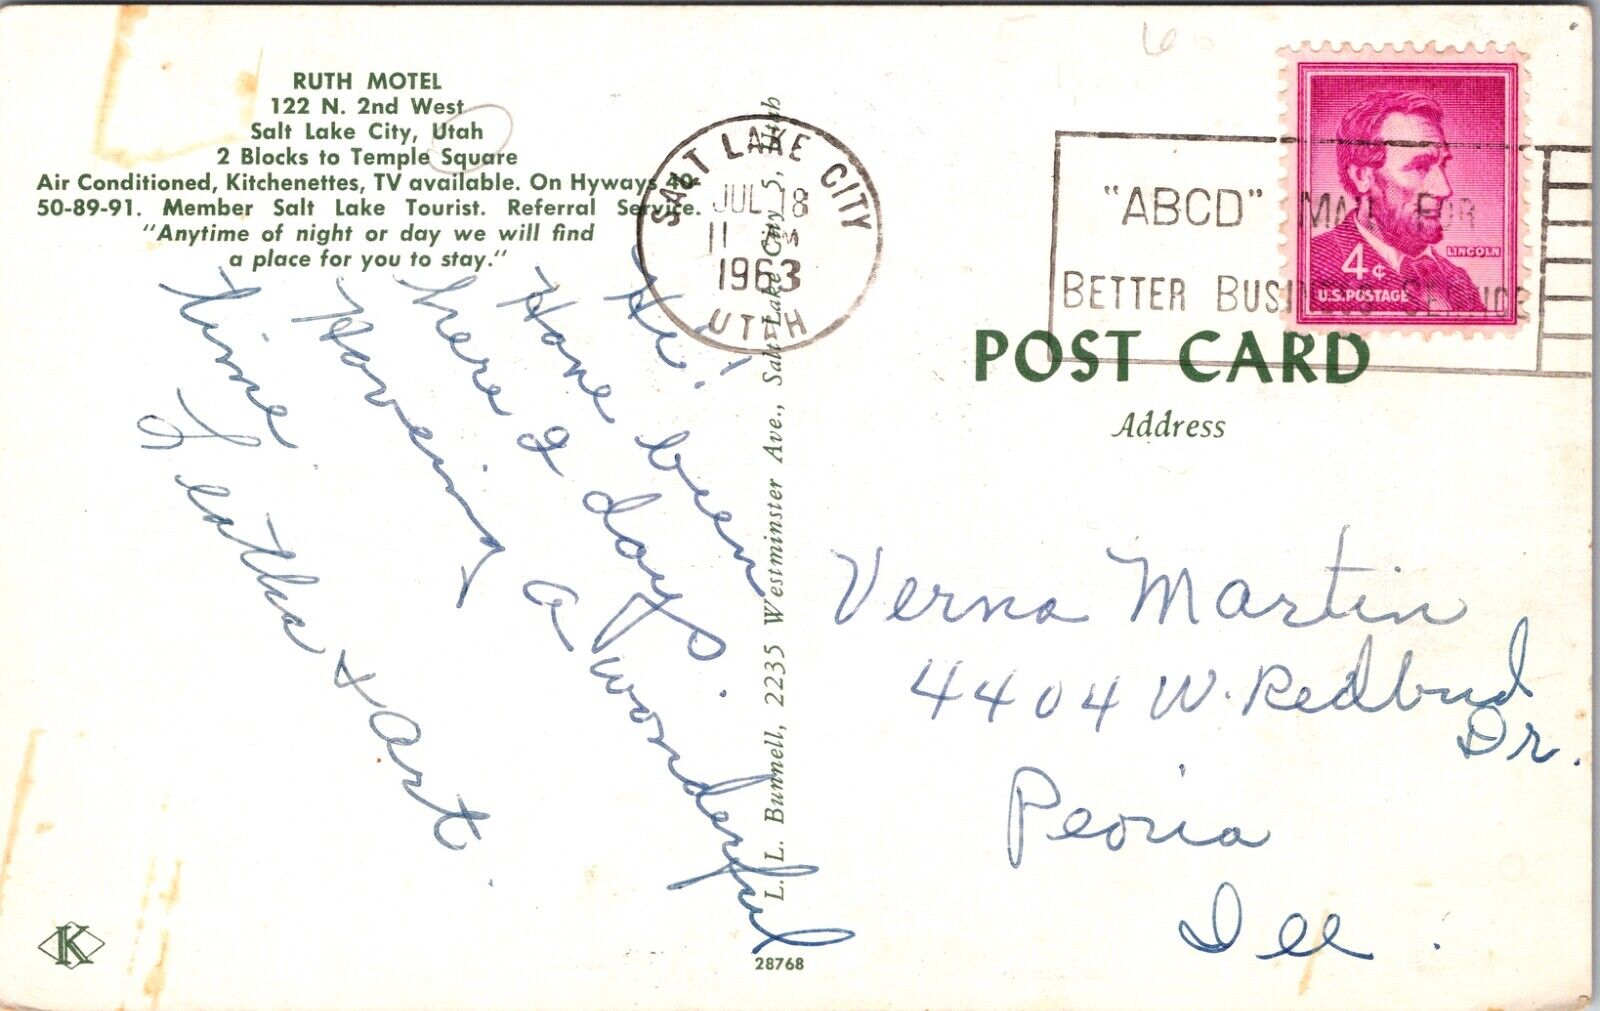 RUTH MOTEL
122 N. 2nd West
Salt Lake City, Utah
2 Blocks to Temple Square
Air Conditioned, Kitchenettes, TV available. On Hyways 40
50-89-91. Member Salt Lake Tourist. Referral Service.
"Anytime of night or day we will find
a place for you to stay."
Hi!
Hone been
here 2 days.
Hoveing a wonderful
time
Leatha + Art.
K
L. L. Bunnell, 2235 Westminster Ave., Salt Lake City 5, Utah
28768
SALT LAKE CITY
JUL 18
11 AM
1963
UTAH
"ABCD" MAIL FOR
BETTER BUSINESS SERVICE
LINCOLN
4¢
U.S. POSTAGE
POST CARD
Address
Verna Martin
4404 W. Redbud
Dr.
Peoria
Ill.